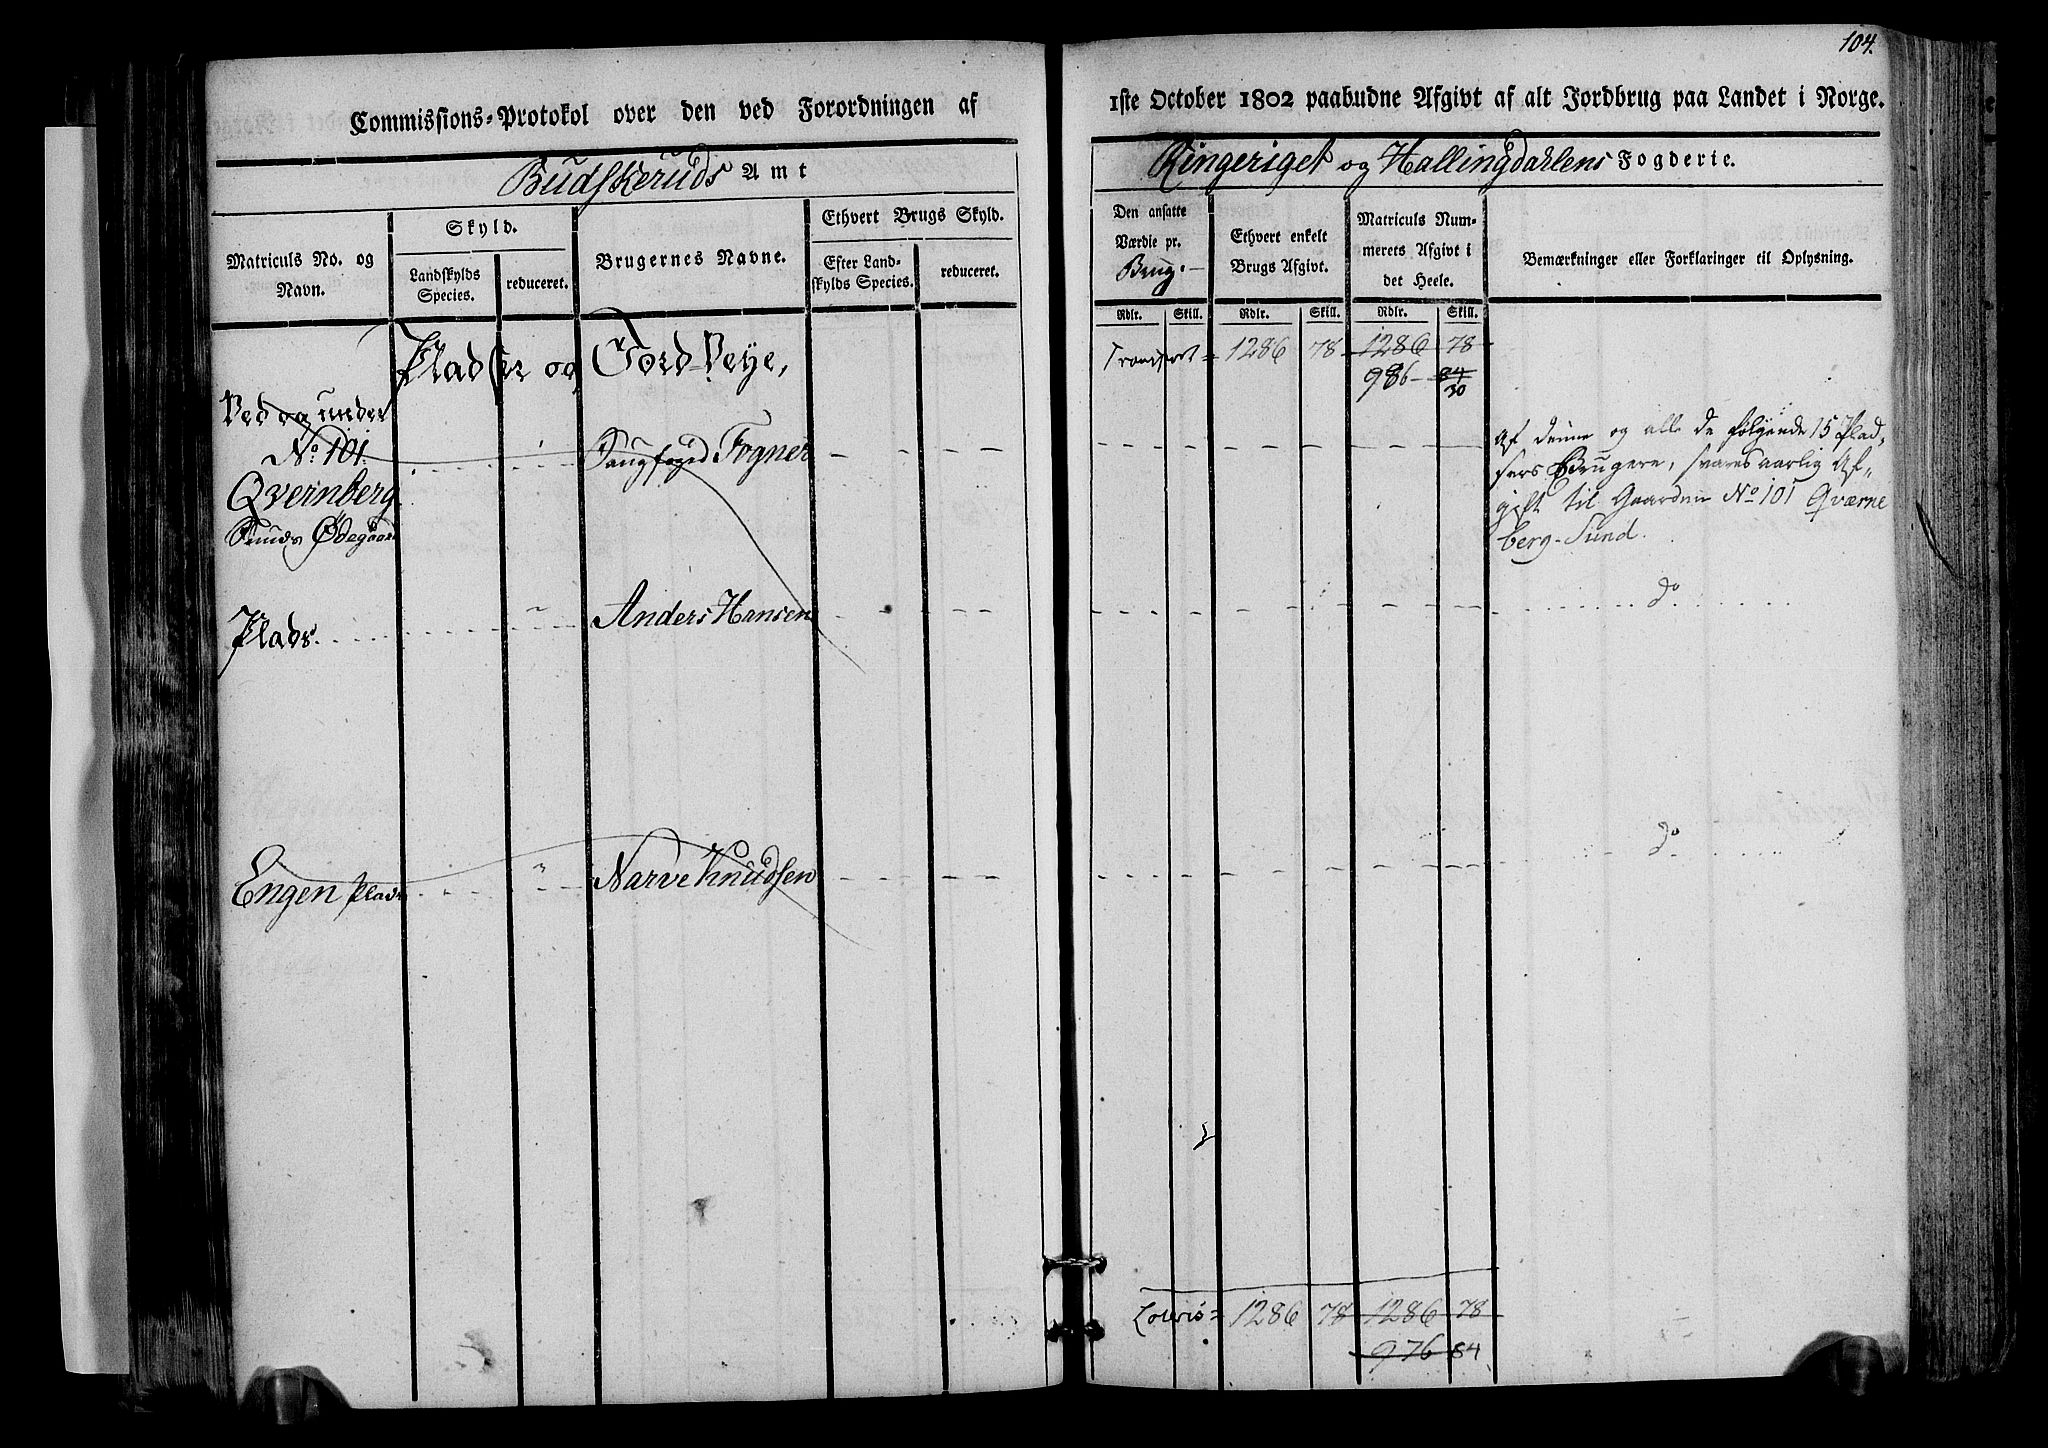 104.
Commissions-Protokol over den ved Forordningen af
1ste October 1802 paabudne Afgivt af alt Jordbrug paa Landet i Norge.
Budskeruds Amt
Ringeriget og Hallingdahlens Fogderie.
Matriculs No. og
Navn.
Skyld.
Landskylds
Species.
reduceret.
Brugernes Navne.
Ethvert Brugs Skyld.
Efter Land-
skylds Species.
reduceret.
Den ansatte
Værdie pr.
Brug.
Ethvert enkelt
Brugs Afgivt.
Matriculs Num-
merets Afgivt i
det Heele.
Bemærkninger eller Forklaringer til Oplysning.
Rdlr. Skill. Rdlr. Skill. Rdlr. Skill.
Pladser og Jord-Veye,
Transport = 1286 78 1286 78
986 84
30
Ved og under
No 101.
Qvernberg
Sunds Ødegaard
Fogner
Af denne og alle de følgende 15 Plad-
sers Brugere, svares aarlig Af-
gift til Gaarden No 101 Qværne
berg-Sund.
Plads. Anders Hansen do
Engen Plads Narve Knudsen do
Lateris = 1286 78 1286 78
976 84